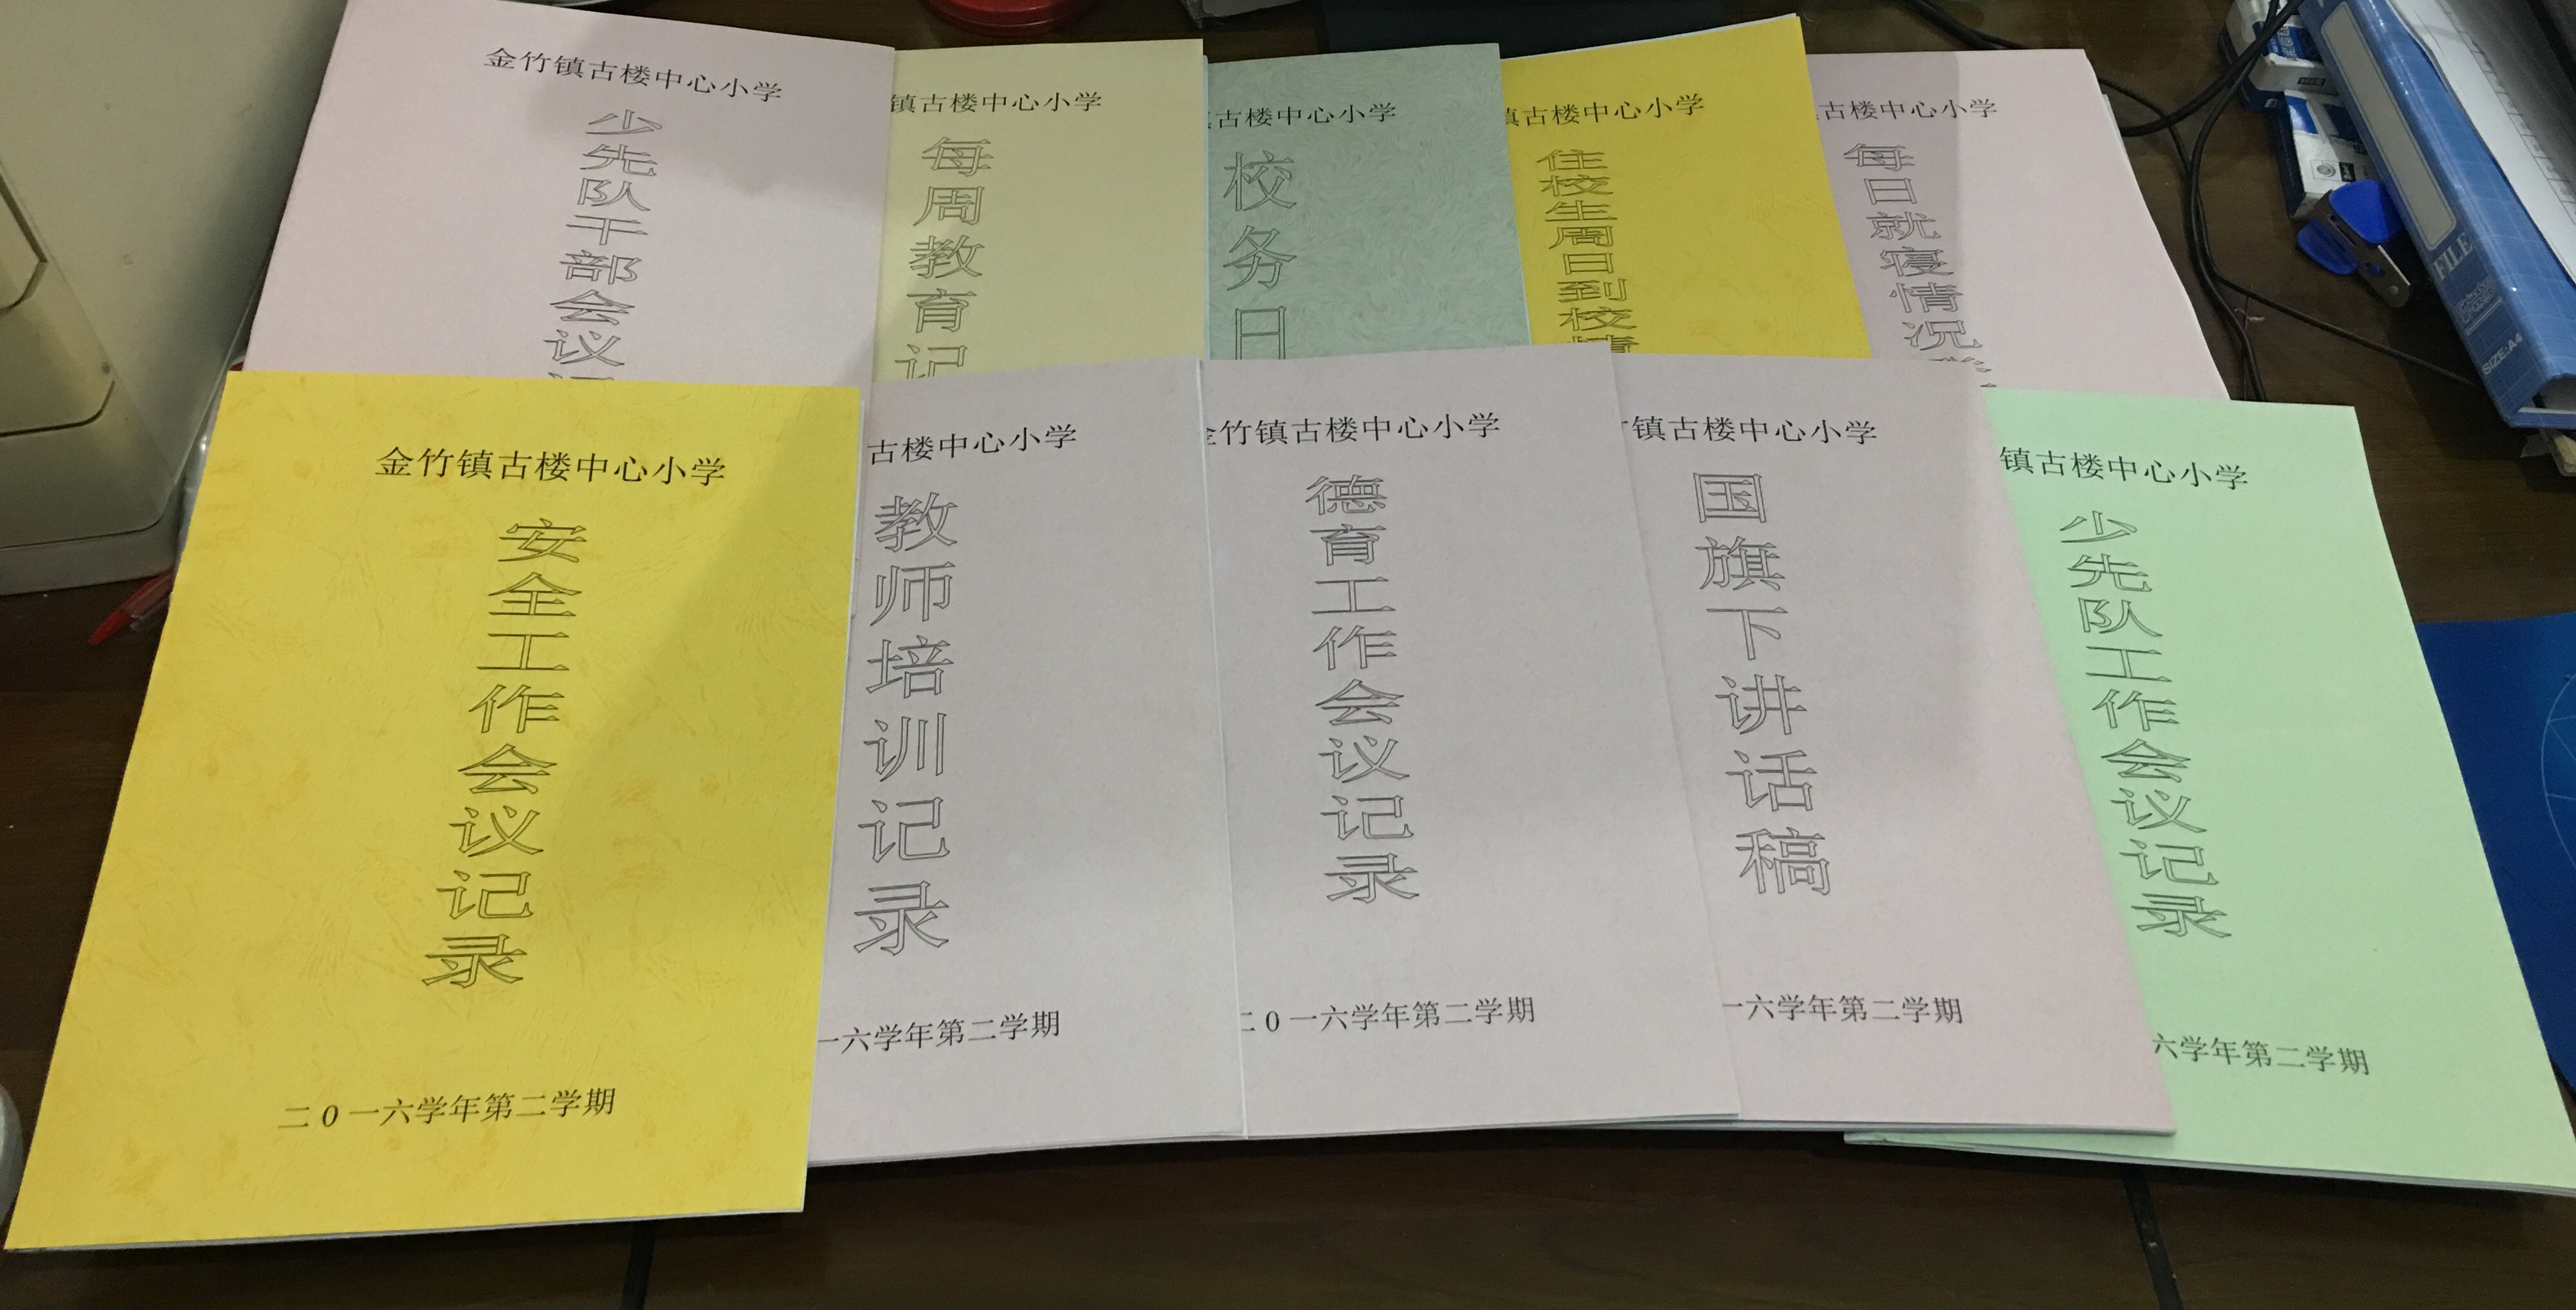 金竹镇古楼中心小学
少先队干部会议
镇古楼中心小学
每周教育记
古楼中心小学
校务日
镇古楼中心小学
住校生周日到校情
古楼中心小学
每日就寝情况
金竹镇古楼中心小学
安全工作会议记录
二0一六学年第二学期
古楼中心小学
教师培训记录
一六学年第二学期
金竹镇古楼中心小学
德育工作会议记录
二0一六学年第二学期
镇古楼中心小学
国旗下讲话稿
一六学年第二学期
镇古楼中心小学
少先队工作会议记录
六学年第二学期
FILE
SIZE:A4